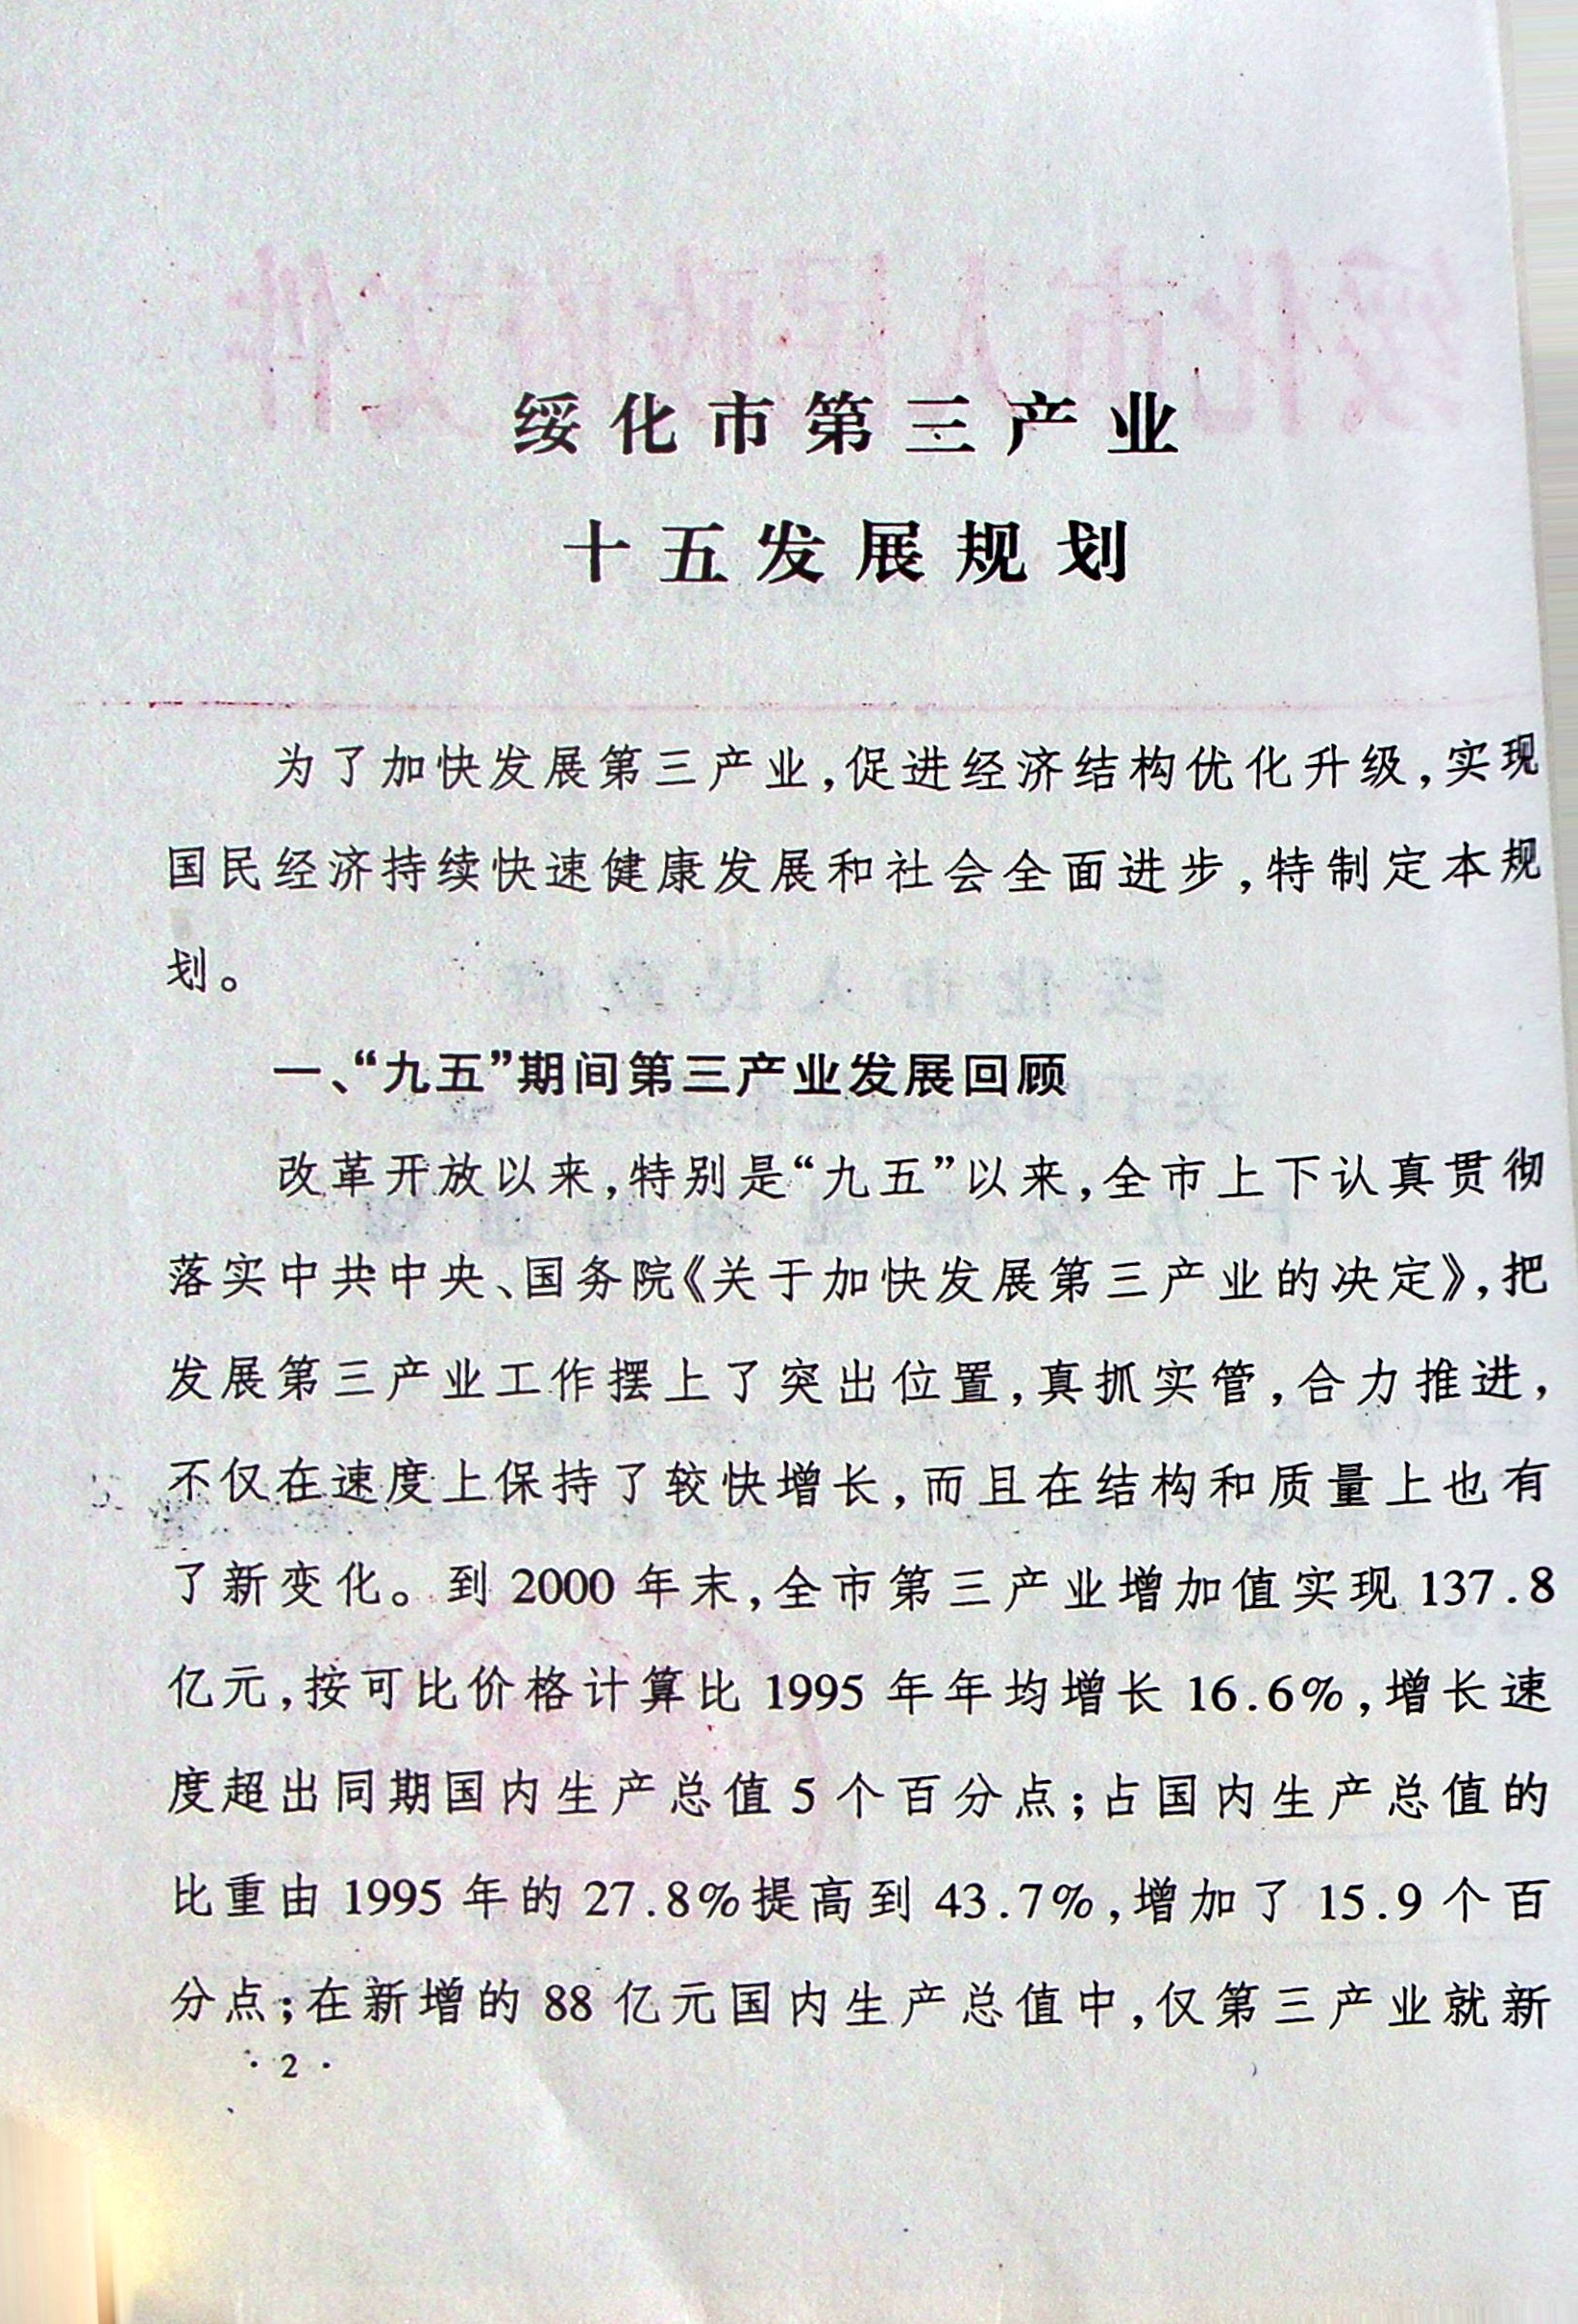 绥化市第三产业
十五发展规划
为了加快发展第三产业,促进经济结构优化升级,实现
国民经济持续快速健康发展和社会全面进步,特制定本规
划。
一、“九五”期间第三产业发展回顾
改革开放以来,特别是“九五”以来,全市上下认真贯彻
落实中共中央、国务院《关于加快发展第三产业的决定》,把
发展第三产业工作摆上了突出位置,真抓实管,合力推进,
不仅在速度上保持了较快增长,而且在结构和质量上也有
了新变化。到 2000 年末,全市第三产业增加值实现 137.8
亿元,按可比价格计算比 1995 年年均增长 16.6%,增长速
度超出同期国内生产总值 5 个百分点;占国内生产总值的
比重由 1995 年的 27.8%提高到 43.7%,增加了 15.9 个百
分点;在新增的 88 亿元国内生产总值中,仅第三产业就新
·2·